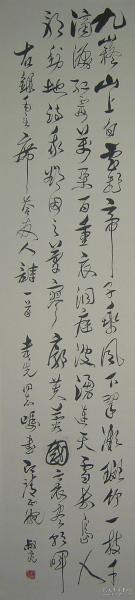 九嶷山上白雲飛帝子乘風下翠微斑竹一枝千
滴淚紅霞萬朵百重衣洞庭波湧連天雪長島人
歌動地詩我欲因之夢寥廓芙蓉國裏盡朝暉
右錄毛主席答友人詩一首 同志囑書即請正